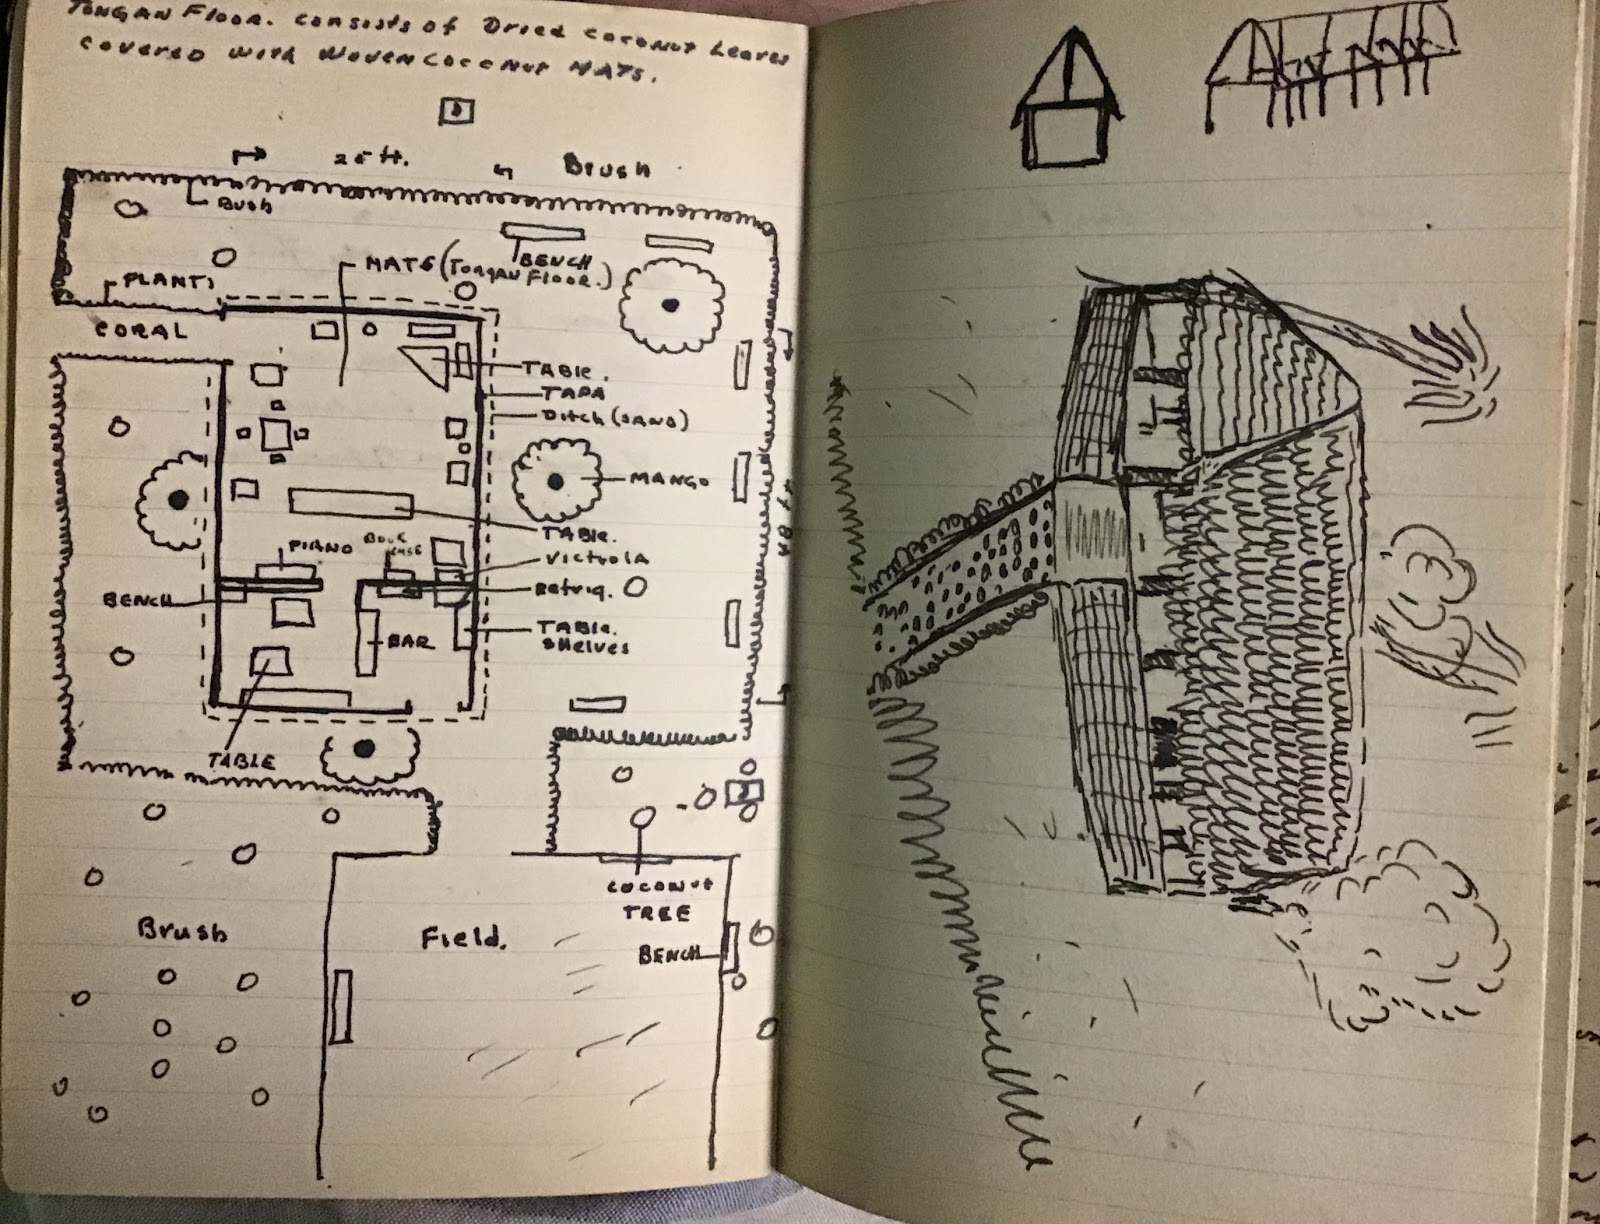 TONGAN FLOOR. CONSISTS OF Dried COCONUT Leaves
COVERED WITH WOVEN COCONUT MATS.
25 ft.
Brush
Bush
BENCH
MATS (TONGAN FLOOR.)
PLANTS
CORAL
TABLE.
TAPA
Ditch (SAND)
MANGO
TABLE.
PIANO
BOOK CASE
VICTROLA
Refrig.
BENCH
TABLE.
SHELVES
BAR
TABLE
COCONUT
TREE
Brush
Field.
BENCH